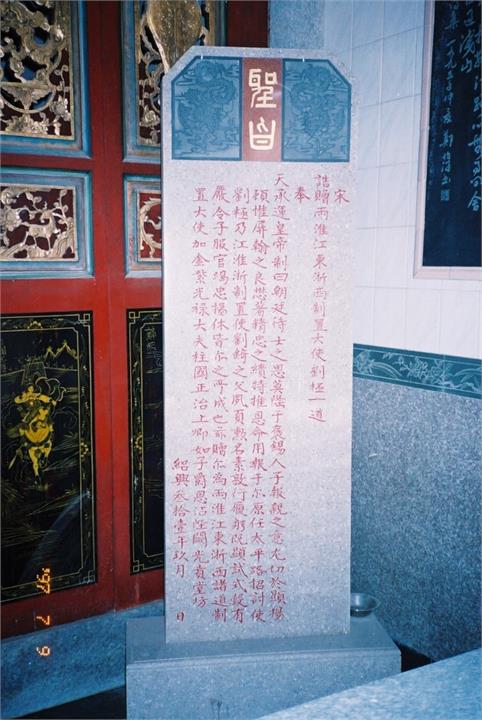 聖旨
宋
誥贈兩淮江東浙西制置大使劉極一道
奉
天承運皇帝制曰朝廷待士之恩莫隆于褒錫人子報親之意尤切於顯揚
顧惟屏翰之良懋著精忠之績特推恩命用報于尔原任太平路招討使
劉極乃江淮浙制置使劉錡之父夙負勲名素敦行履躬既顯試式穀有
嚴令子服官竭忠揚休皆尔之所成也茲贈尔為兩淮江東浙西諸道制
置大使加金紫光祿大夫柱國正治上卿如子爵恩沾陛闕光賁堂坊
紹興叁拾壹年玖月　日
'97 7 9